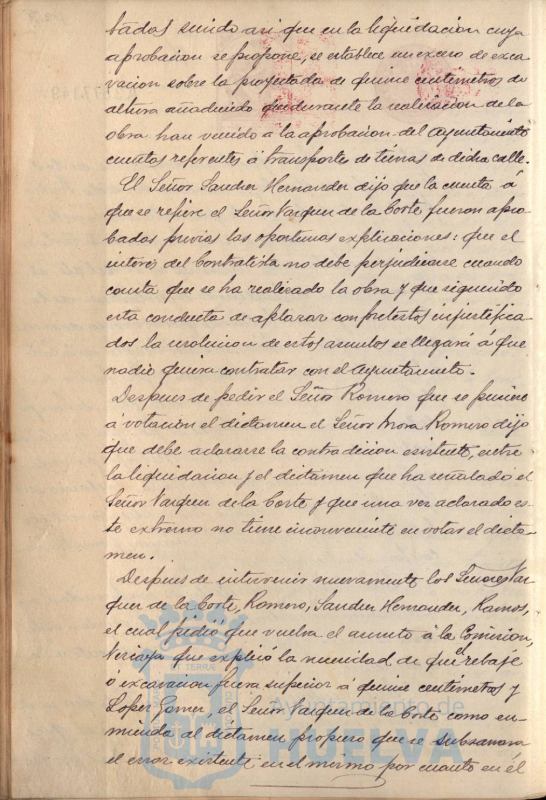 tados siendo asi que en la liquidacion cuya
aprobacion se propone, se establece un exceso de exca-
vacion sobre la proyectada de quince centimetros de
altura añadiendo que durante la realizacion de la
obra han venido a la aprobacion del Ayuntamiento
cuentas referentes á transportes de tierras de dicha calle.
El Señor Sanchez Hernandez dijo que la cuenta á
que se refiere el Señor Vazquez de la Corte fueron apro-
badas previas las oportunas explicaciones: que el
interés del Contratista no debe perjudicarse cuando
consta que se ha realizado la obra y que siguiendo
esta conducta de aplazar con pretextos injustifica-
dos la resolucion de estos asuntos se llegará á que
nadie quiera contratar con el Ayuntamiento.
Despues de pedir el Señor Romero que se pusiese
á votacion el dictamen el Señor Mora Romero dijo
que debe aclararse la contradiccion existente, entre
la liquidacion y el dictamen que ha señalado el
Señor Vazquez de la Corte y que una vez aclarado es-
te extremo no tiene inconveniente en votar el dicta-
men.
Despues de intervenir nuevamente los Señores Vaz-
quez de la Corte, Romero, Sanchez Hernandez, Ramos,
el cual pidió que vuelva el asunto á la Comision,
que explicó la necesidad de que el rebaje
o excavacion fuera superior á quince centimetros y
Lopez Gomez, el Señor Vazquez de la Corte como en-
mienda al dictamen propuso que se subsanara
el error existente en el mismo por cuanto en él
Ayuntamiento de
HUELVA